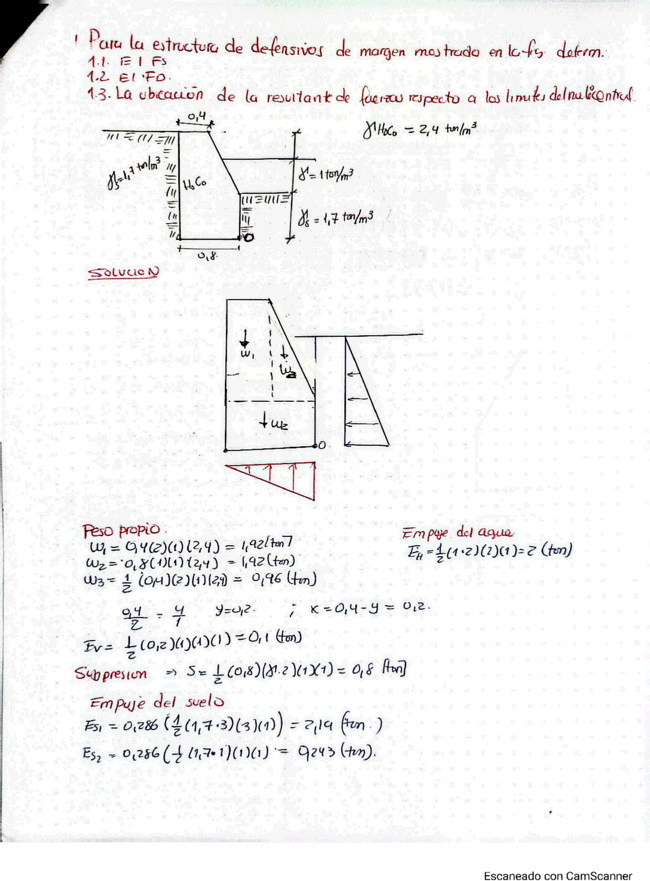 1 Para la estructura de defensivos de margen mostrado en la fig determ.
1.1. El Fs
1.2 El FD.
1.3. La ubicación de la resultant de fuerzas respecto a los limites del nucleo central.
0,4
γHoCo = 2,4 ton/m³
γs=1,7 ton/m³
HoCo
γ=1 ton/m³
γs = 1,7 ton/m³
O
0,8
SOLUCION
W1
W3
W2
O
Peso propio.
W1 = 0,4(2)(1)(2,4) = 1,92[ton]
W2 = 0,8(1)(1)(2,4) = 1,92(ton)
W3 = 1/2 (0,4)(2)(1)(2,4) = 0,96 (ton)
Empuje del agua
EH = 1/2(1·2)(2)(1) = 2 (ton)
0,4/2 = y/1 y=0,2. ; x = 0,4-y = 0,2.
Ev = 1/2 (0,2)(1)(1)(1) = 0,1 (ton)
Subpresion ⇒ S = 1/2 (0,8)(γ·2)(1)(1) = 0,8 [ton]
Empuje del suelo
Es1 = 0,286 (1/2(1,7·3)(3)(1)) = 2,19 (ton.)
Es2 = 0,286 (1/2 (1,7·1)(1)(1) = 0,243 (ton).
Escaneado con CamScanner